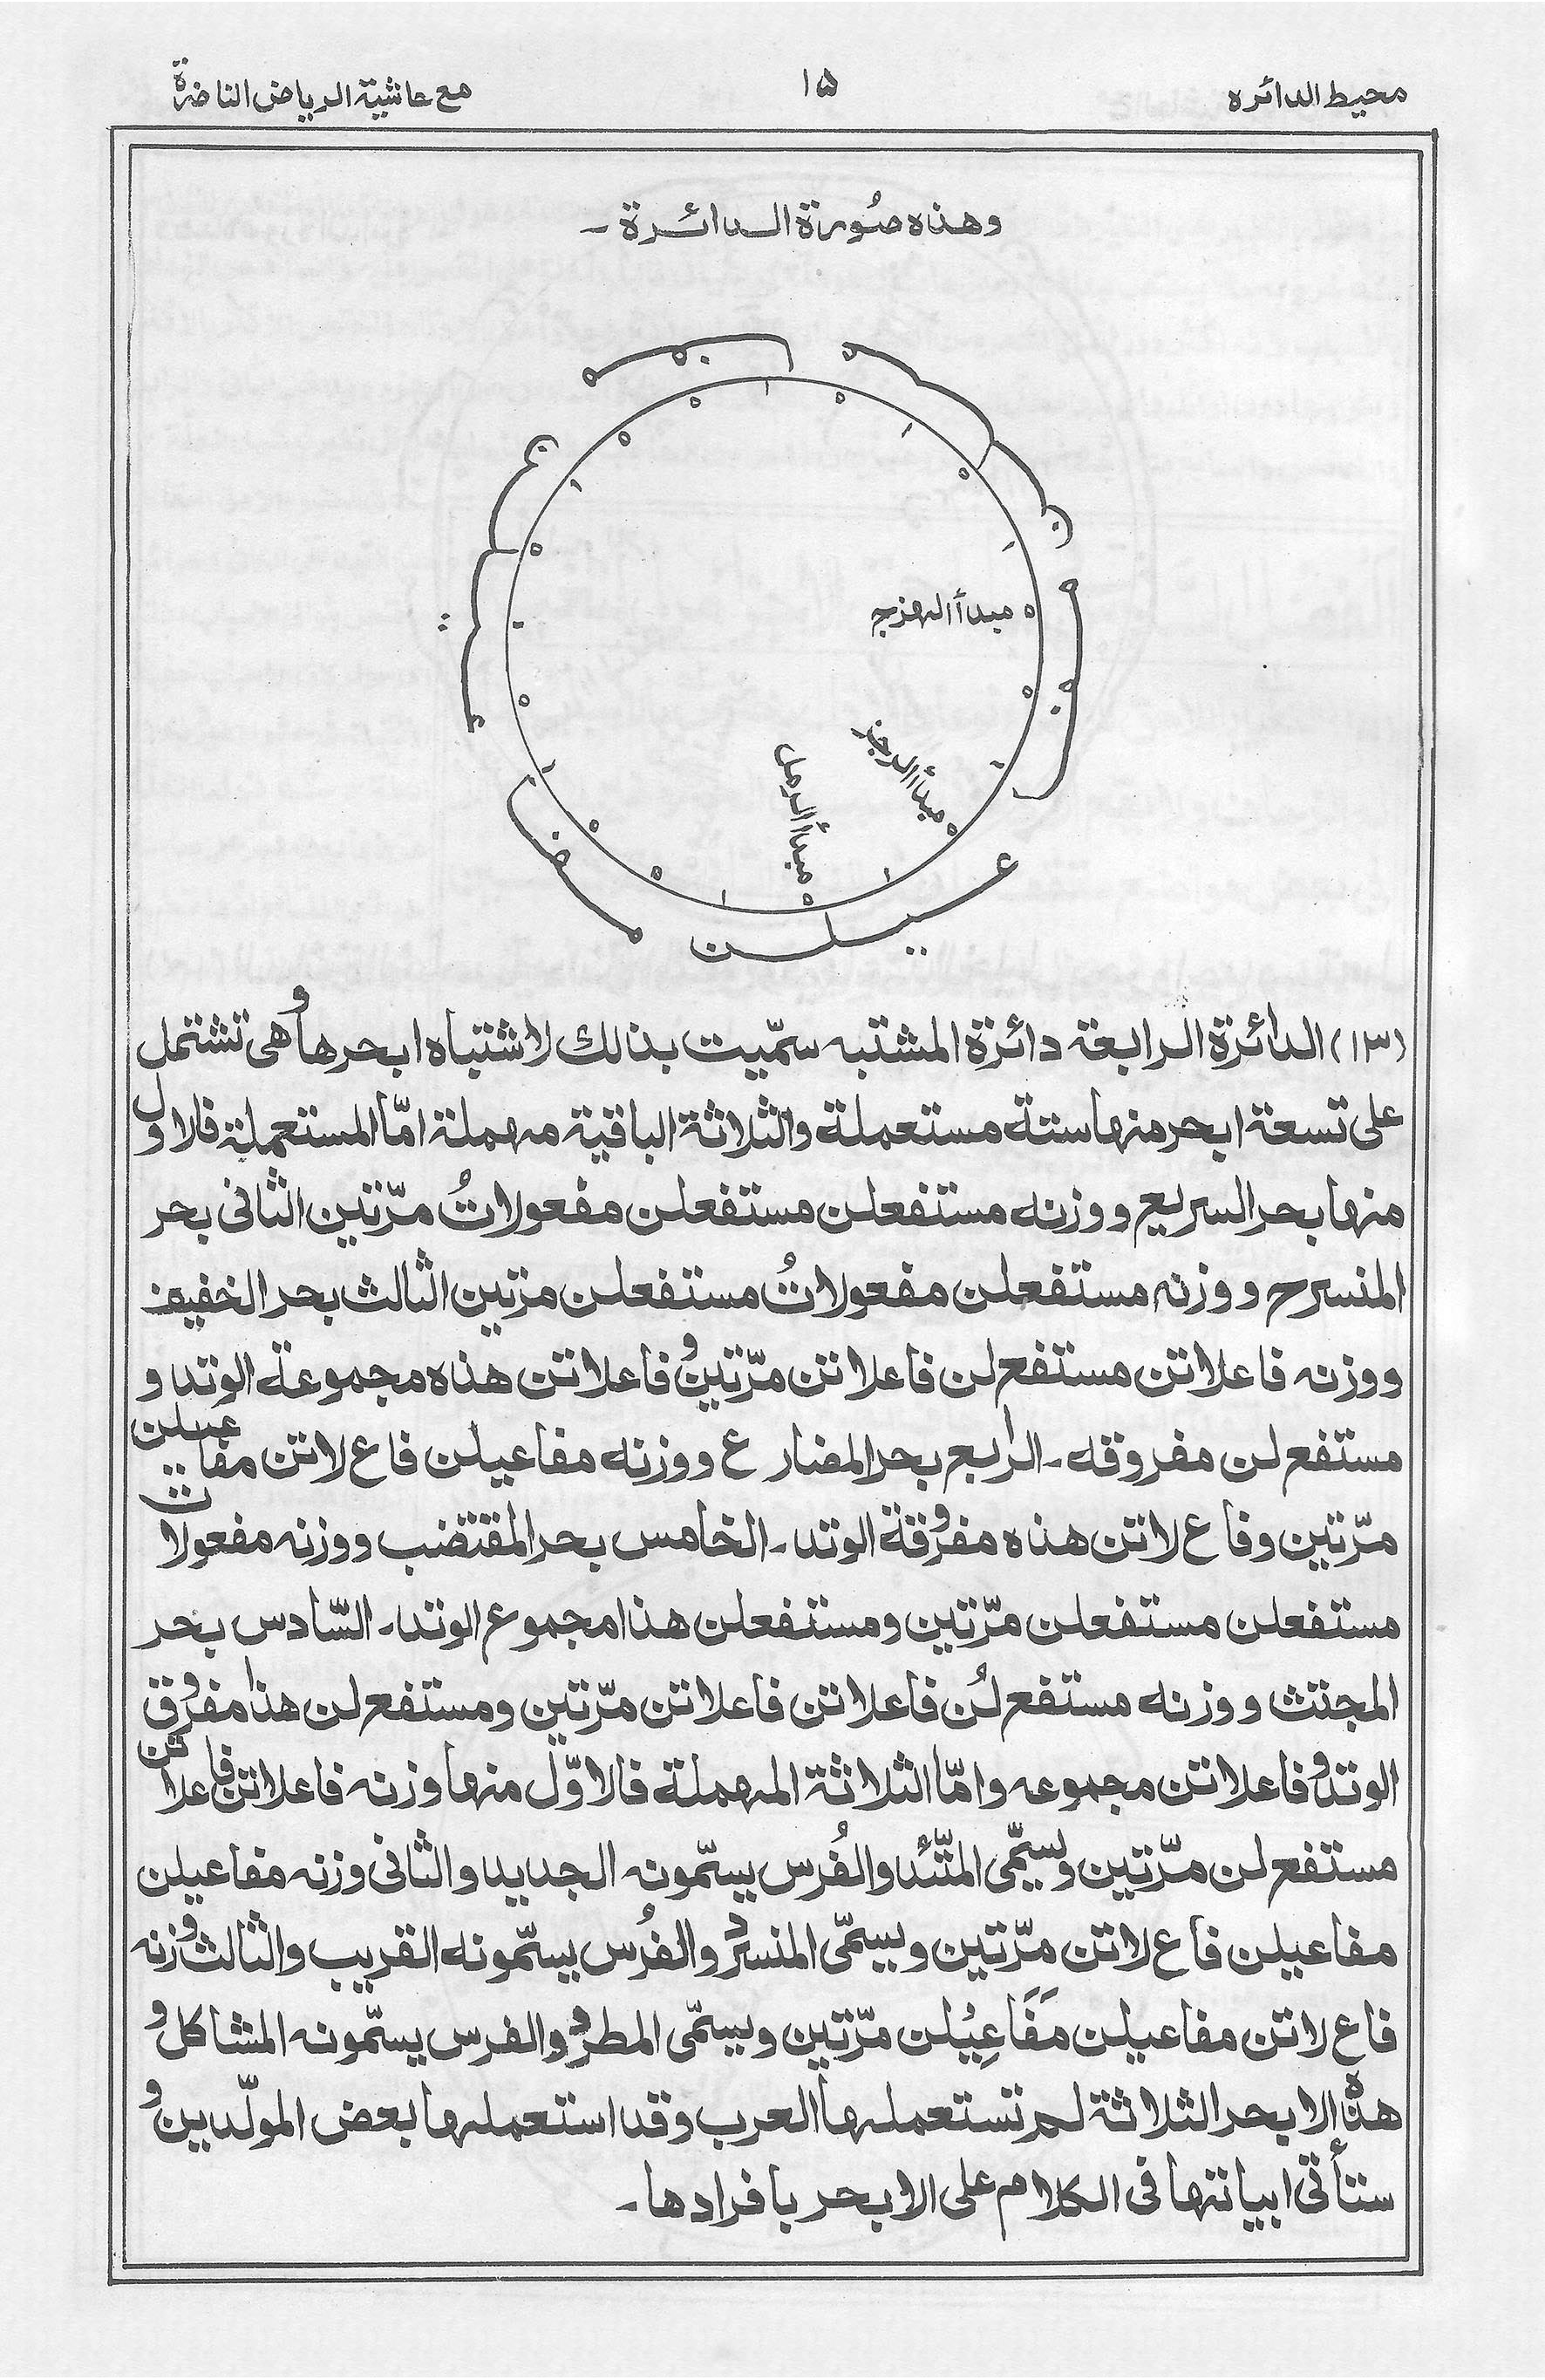 محيط الدائره
١٥
مع حاشية الرياض الناضرة
وهذه صُورة الدائرة ـ
مفاعيلن
مفاعيلن
مفاعيلن
مبدأ الهزج
مبدأ الرجز
مبدأ الرمل
(١٣) الدائرة الرابعة دائرة المشتبه سمّيت بذلك لاشتباه ابحرها وهى تشتمل
على تسعة ابحر منها ستة مستعملة والثلاثة الباقية مهملة امّا المستعملة فالاول
منها بحر السريع ووزنه مستفعلن مستفعلن مفعولاتُ مرّتين الثانى بحر
المنسرح ووزنه مستفعلن مفعولاتُ مستفعلن مرتين الثالث بحر الخفيف
ووزنه فاعلاتن مستفع لن فاعلاتن مرّتين وفاعلاتن هذه مجموعة الوتد و
مستفع لن مفروقه ـ الرابع بحر المضارع ووزنه مفاعيلن فاع لاتن مفاعيلن
مرّتين وفاع لاتن هذه مفروقة الوتد ـ الخامس بحر المقتضب ووزنه مفعولات
مستفعلن مستفعلن مرّتين ومستفعلن هذا مجموع الوتد ـ السّادس بحر
المجتث ووزنه مستفع لُن فاعلاتن فاعلاتن مرّتين ومستفع لن هذا مفروق
الوتد وفاعلاتن مجموعه وامّا الثلاثة المهملة فالاوّل منها وزنه فاعلاتن فاعلاتن
مستفع لن مرّتين ويسمّى المتّئد والفُرس يسمّونه الجديد والثانى وزنه مفاعيلن
مفاعيلن فاع لاتن مرّتين ويسمّى المنسرد والفُرس يسمّونه القريب والثالث وزنه
فاع لاتن مفاعيلن مَفَاعِيْلن مرّتين ويسمّى المطرد والفرس يسمّونه المشاكل و
هذه الابحر الثلاثة لم تستعملها العرب وقد استعملها بعض المولّدين و
ستأتى ابياتها فى الكلام على الابحر بافرادها ـ